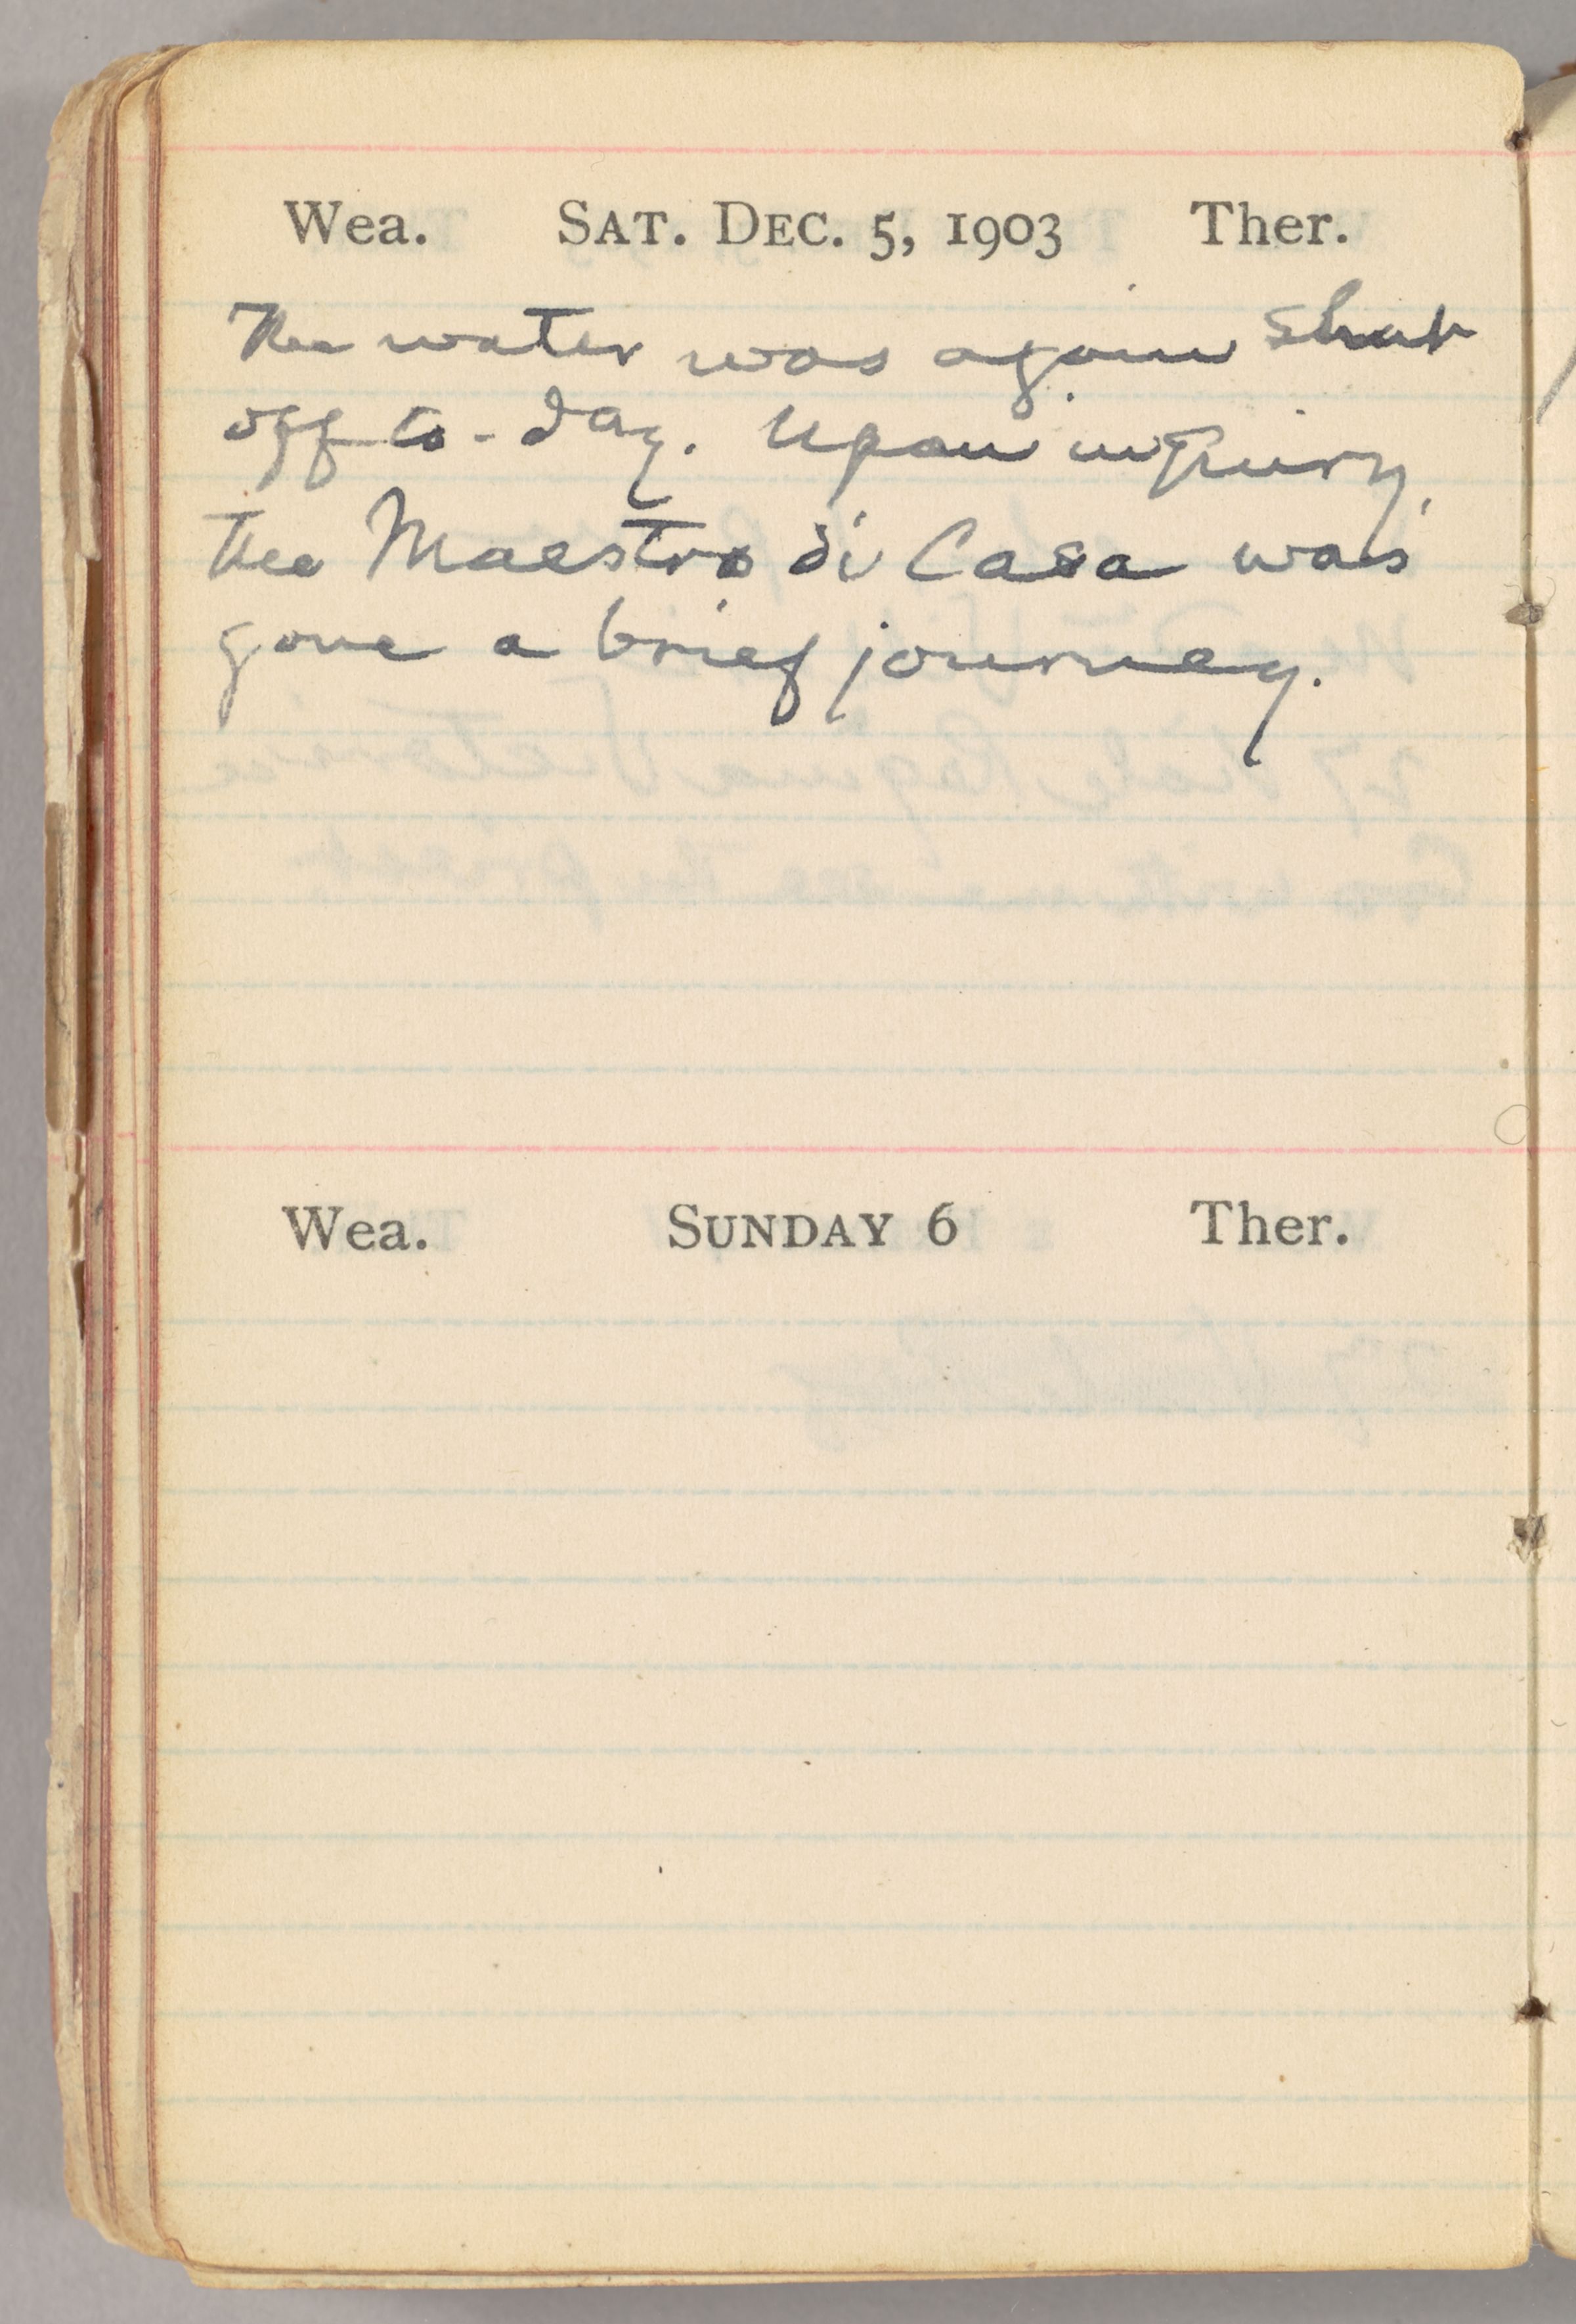 Wea. SAT. DEC. 5, 1903 Ther.
The water was again shut
off to-day. Upon inquiry,
the Maestro di Casa was
gone a brief journey.
Wea. SUNDAY 6 Ther.